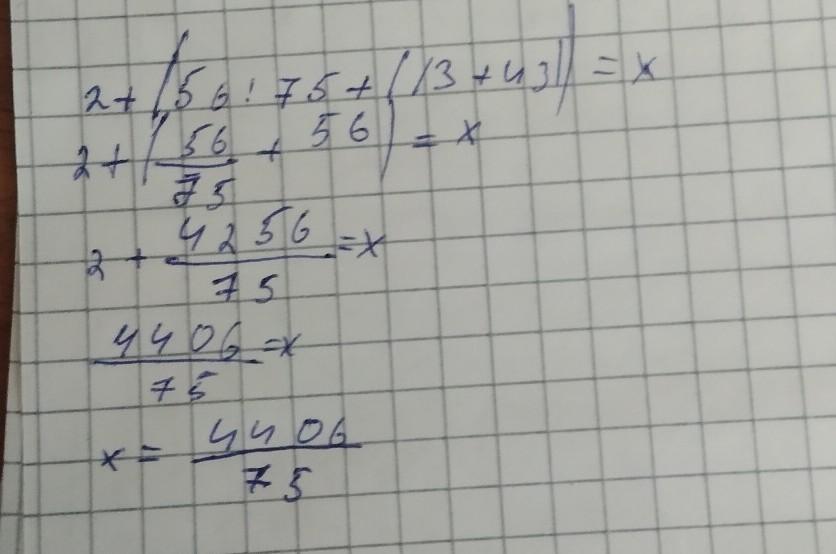 2+(56:75+(13+43))=x
2+(56/75+56)=x
2+4256/75=x
4406/75=x
x=4406/75